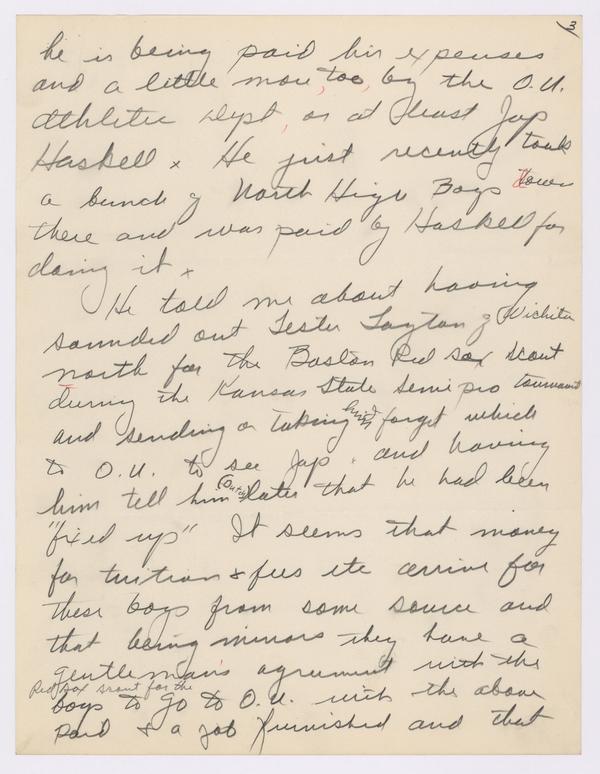 3
he is being paid his expenses
and a little more, too, by the O.U.
athletic dept, or at least Jap
Haskell x He just recently took
a bunch of North High Boys down
there and was paid by Haskell for
doing it x
He told me about having
sounded out Lester Layton of Wichita
north for the Boston Red Sox scout
during the Kansas State semi pro tournament
and sending or taking him forget which
to O.U. to see Jap . and having
him tell him (Dutch) later that he had been
"fixed up" It seems that money
for tuition & fees etc arrive for
these boys from some source and
that being minors they have a
gentleman's agreement with the
Red Sox scout for the
boys to go to O.U. with the above
paid & a job furnished and that